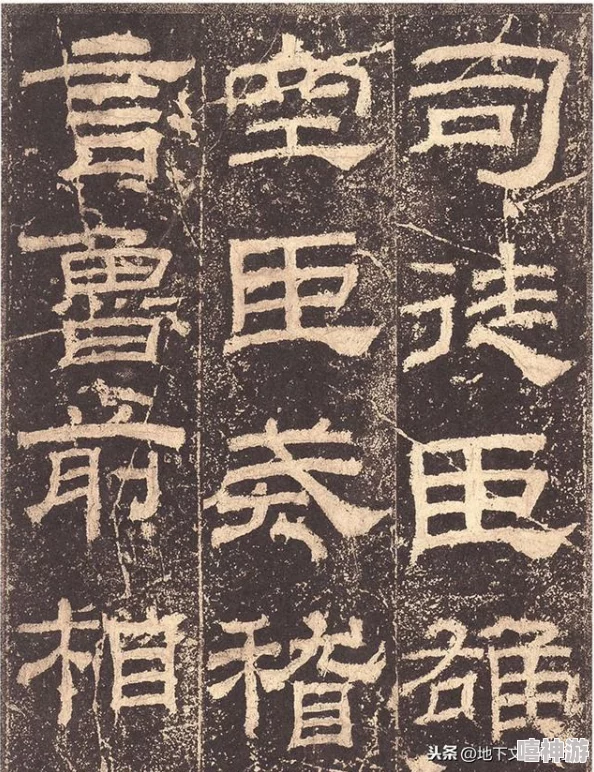 司徒臣雄
空臣戒稽
言魯前相
头条 @地下文
嘻神游